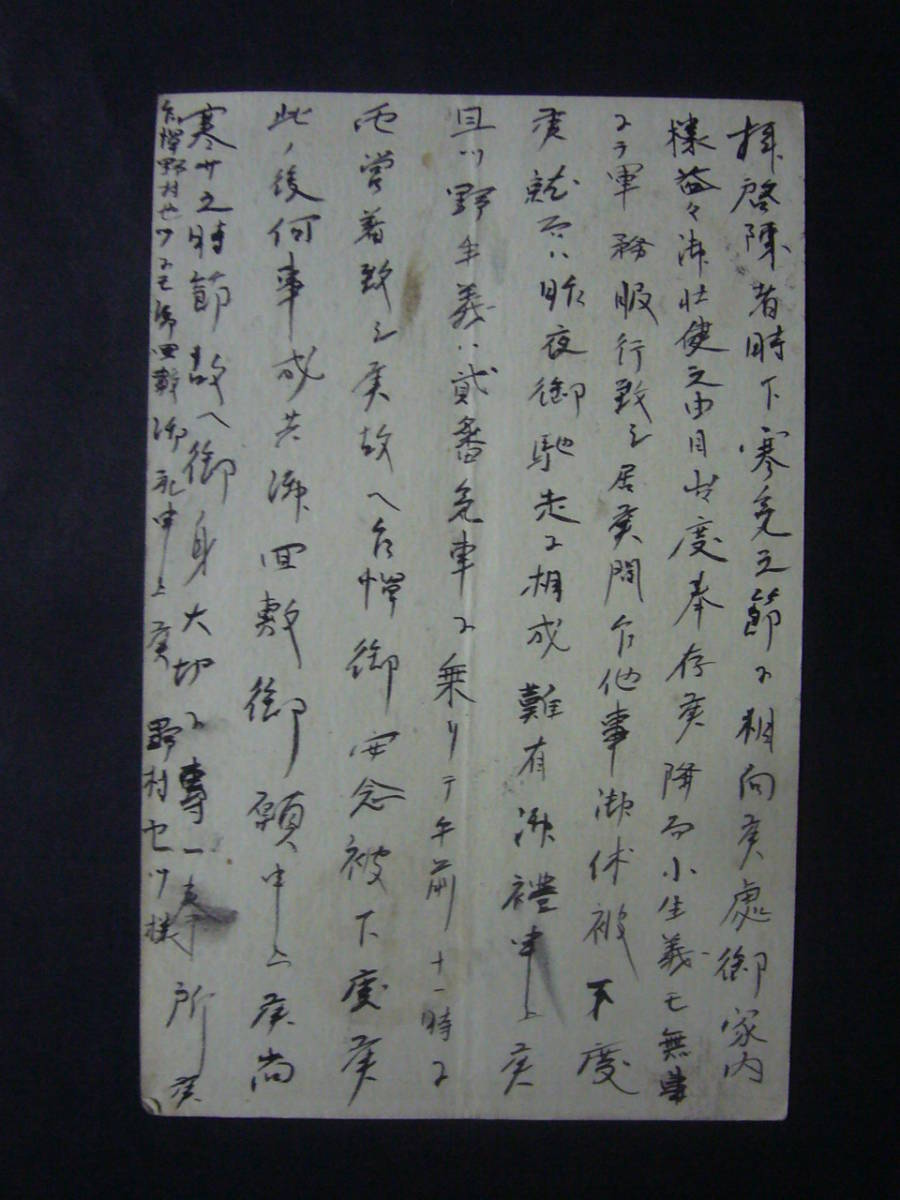 拝啓陳者時下寒気之節ニ相向候處御家内
様益々御壮健之由目出度奉存候降而小生義モ無事
ニテ軍務服行致シ居候間乍他事御休被下度
候就而ハ昨夜御馳走ニ相成難有御禮申上候
且ツ野生義ハ貳番気車ニ乗リテ午前十一時ニ
帰営着致シ候故ヘ乍憚御安念被下度候
此ノ後何事成共御回敷御願申上候尚
寒サ之時節故ヘ御身大切ニ専一奉所候
乍憚野村セツ様ニモ御回敷御礼申上候 野村セツ様